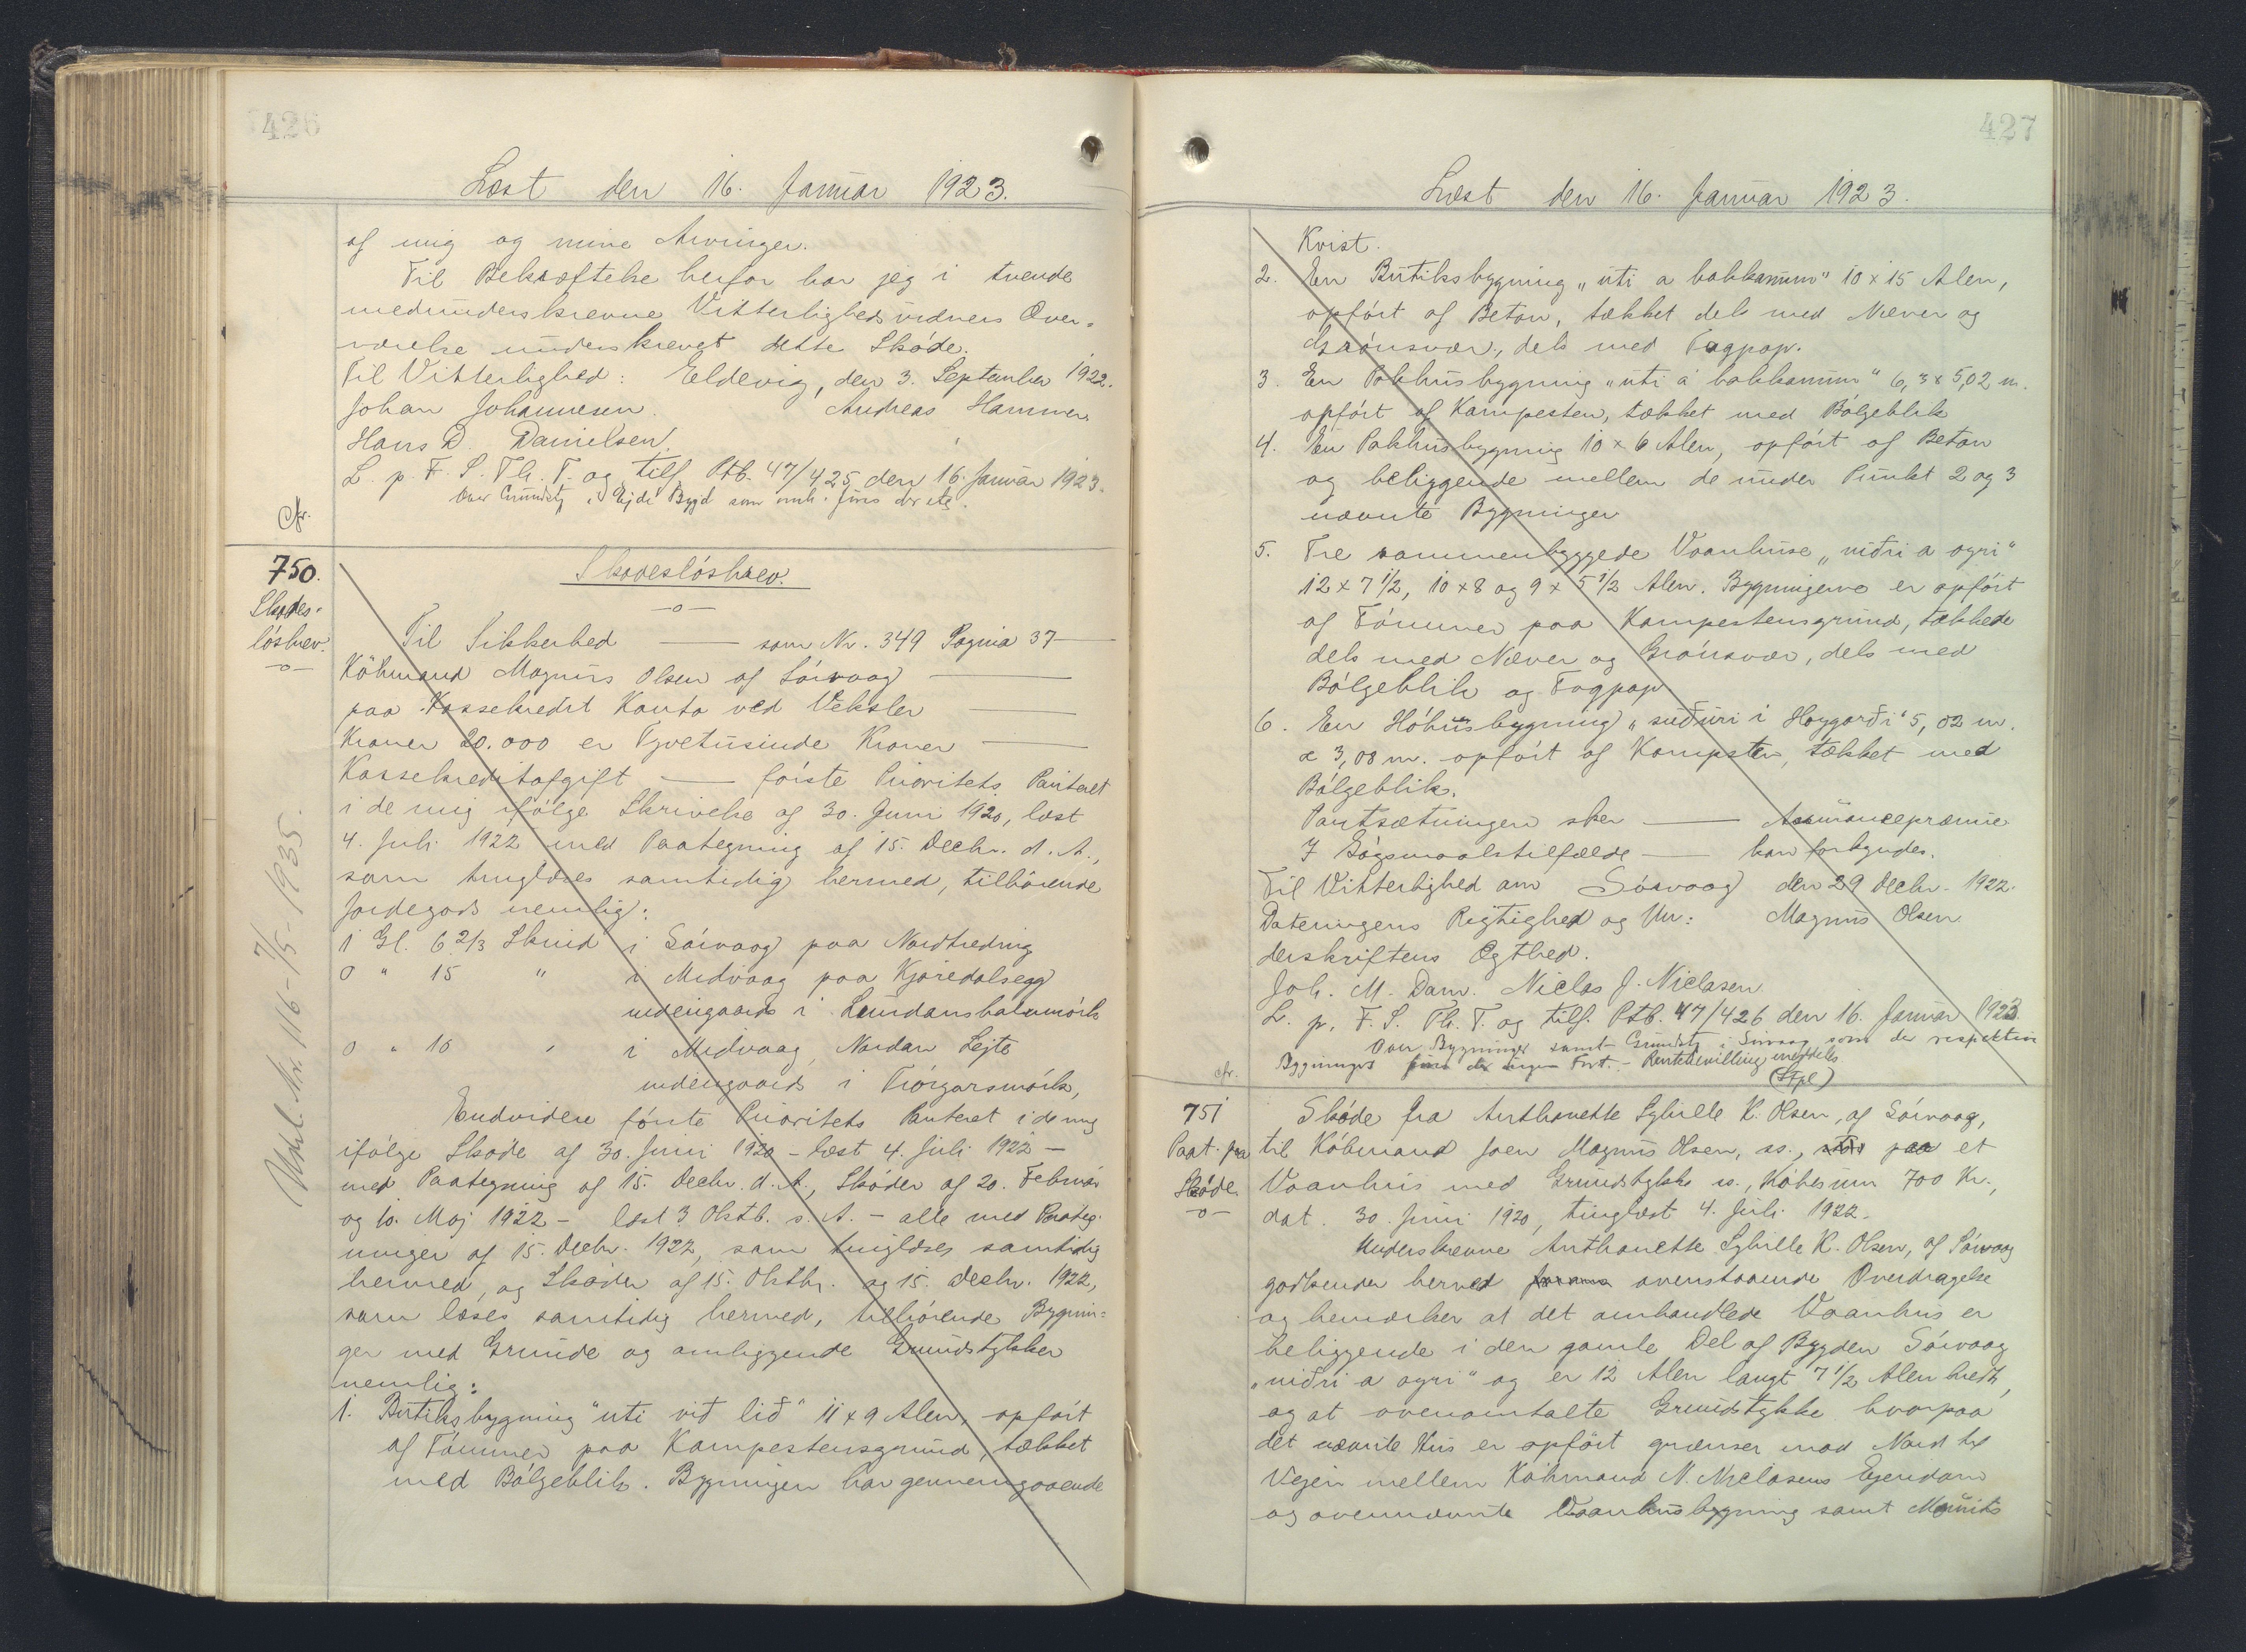 426
Læst den 16. Januar 1923.
af mig og mine Arvinger.
Til Bekræftelse herfor har jeg i tvende
medunderskrevne Vitterlighedsvidners Over-
værelse underskrevet dette Skóde.
Til Vitterlighed: Eldevig, den 3. September 1922.
Johan Johannesen. Andreas Hammer
Hans D. Danielsen
L. p. F. S. Th. T. og tilf. Ptb. 47/425 den 16. Januar 1923.
Over Grundst. i Ejde Bygd som omh. fins der
Cfr.
750.
Skades-
lósbrev.
-o-
Skadeslósbrev.
-o-
Til Sikkerhed — som Nr. 349 Pagina 37 —
Köbmand Magnus Olsen af Sórvaag —
paa Kassekredit Konto ved Veksler —
Kroner 20.000 er Tyvetusinde Kroner —
Kassekreditafgift — fórste Prioritets Panteret
i de mig ifólge Skrivelse af 30. Juni 1920, læst
4. Juli 1922 med Paategning af 15. Decbr. d. A.,
som tinglæses samtidig hermed, tilhórende
Jordegods nemlig:
1 Gl. 6 2/3 Skind i Sórvaag paa Nordtredning
0 " 15 " i Midvaag paa Kjoredalsegg
udengaards i
0 " 10 " i Midvaag, Nordan Lejte
udengaards i
Endvidere fórste Prioritets Panteret i de mig
ifólge Skóde af 30. Juni 1920 - læst 4. Juli 1922 -
med Paategning af 15. Decbr. d. A., Skóder af 20. Februar
og 10. Maj 1922 - læst 3. Oktb. s. A. - alle med Paateg-
ninger af 15. Decbr. 1922, som tinglæses samtidig
hermed, og Skóder af 15. Oktbr. og 15. Decbr. 1922,
som læses samtidig hermed, tilhórende Bygnin-
ger med Grunde og omliggende Grundstykker
nemlig:
1. Butiksbygning "uti vit lið" 11 x 9 Alen, opfórt
af Tómmer paa Kampestensgrund, tækket
med Bólgeblik. Bygningen har gennemgaaende
Udsl. Nr. 116 - 7/5 - 1935.
427
Læst den 16. Januar 1923.
Kvist.
2. En Butiksbygning "uti a bakkanum" 10 x 15 Alen,
opfórt af Beton, tækket dels med Næver og
Grónsvær, dels med Tagpap.
3. En Pakhusbygning "uti á bakkanum" 6,3 x 5,02 m.
opfórt af Kampesten, tækket med Bólgeblik
4. En Pakhusbygning 10 x 6 Alen, opfórt af Beton
og beliggende mellem de under Punkt 2 og 3
nævnte Bygninger
5. Tre sammenbyggede Vaanhuse "niðri a oyri"
12 x 7 1/2, 10 x 8 og 9 x 5 1/2 Alen. Bygningerne er opfórt
af Tómmer paa Kampestensgrund, tækkede
dels med Næver og Grónsvær, dels med
Bólgeblik og Tagpap
6. En Hóhusbygning "suðuri i Hoygarði" 5,02 m.
x 3,08 m. opfórt af Kampsten, tækket med
Bólgeblik.
Pantsætningen sker — Assurancepræmie
I Sógsmaalstilfælde — kan forkyndes.
Til Vitterlighed om Sórvaag den 29 Decbr. 1922.
Dateringens Rigtighed og Un: Magnus Olsen
derskriftens Ægthed.
Joh. M. Dam. Niclas J. Niclasen
L. p. F. S. Th. T. og tilf. Ptb. 47/426 den 16. Januar 1923.
Over Bygninger samt Grundst. i Sórvaag som de respektive
Bygninger fins der ingen Fort. - Rentebevilling meddeles.
cfr.
(Stpl)
751
Paat. paa
Skóde.
-o-
Skóde fra Anthonette Sybille K. Olsen, af Sórvaag,
til Kóbmand Joen Magnus Olsen, ss., paa et
Vaanhus med Grundstykke ss., Kóbesum 700 Kr.,
dat. 30. Juni 1920, tinglæst 4. Juli 1922.
Underskrevne Anthonette Sybille K. Olsen, af Sórvaag
godkender herved ovenstaaende Overdragelse
og bemærker at det omhandlede Vaanhus er
beliggende i den gamle Del af Bygden Sórvaag
"niðri a oyri" og er 12 Alen langt 7 1/2 Alen bredt,
og at ovenomtalte Grundstykke hvorpaa
det nævnte Hus er opfórt grænser mod Nord til
Vejen mellem Kóbmand N. Niclasens Ejendom
og ovennævnte Vaanhusbygning samt